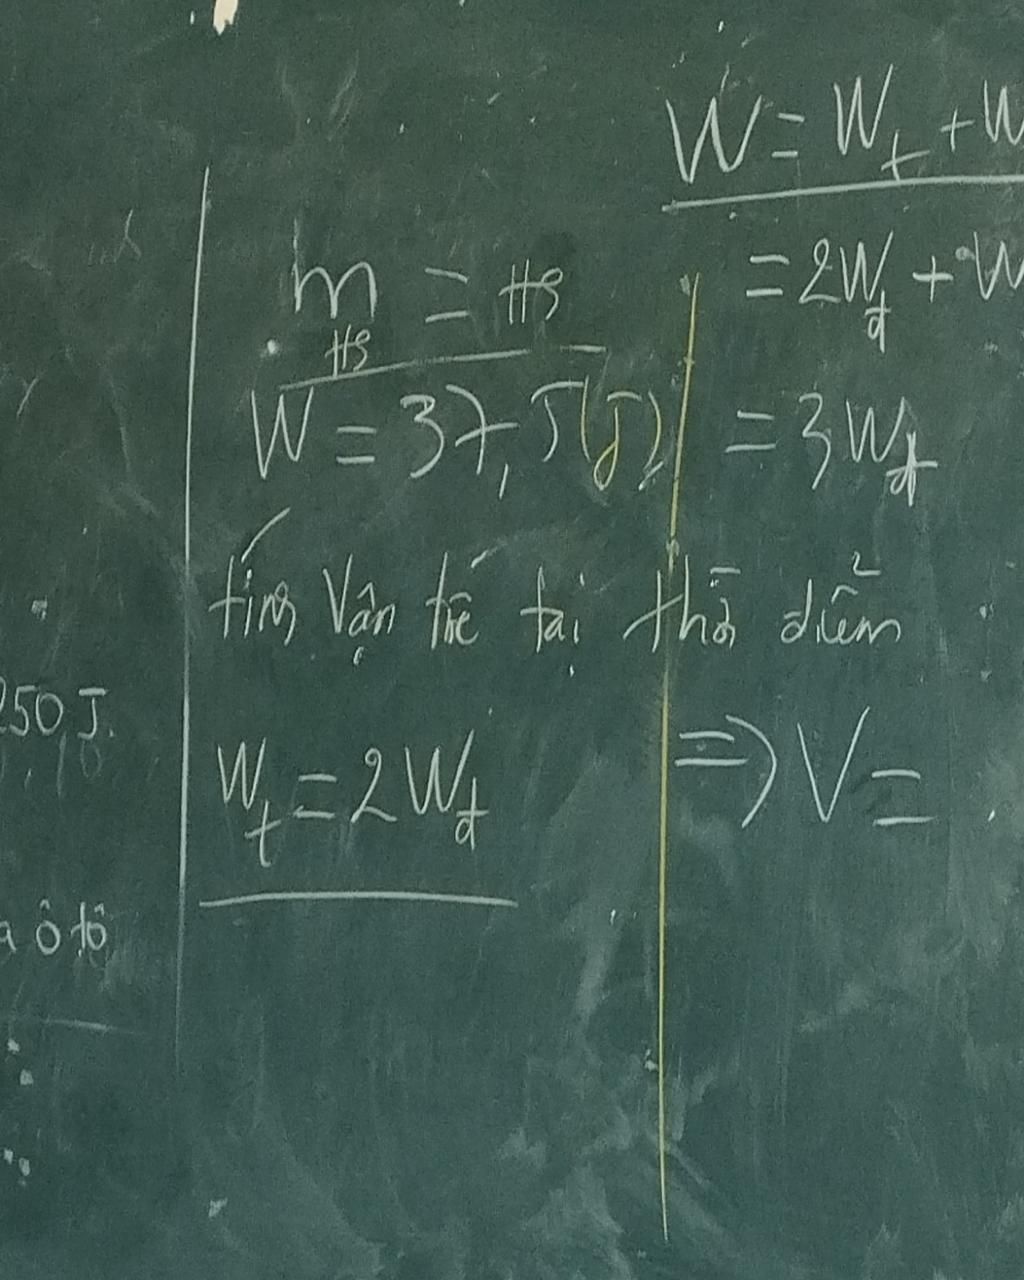 250 J.
ô tô
m = HS
HS
W = 37,5 (J)
tính Vận tốc tại thời điểm
Wt = 2Wđ
W = Wt + W
= 2Wđ + W
= 3Wđ
=> V =